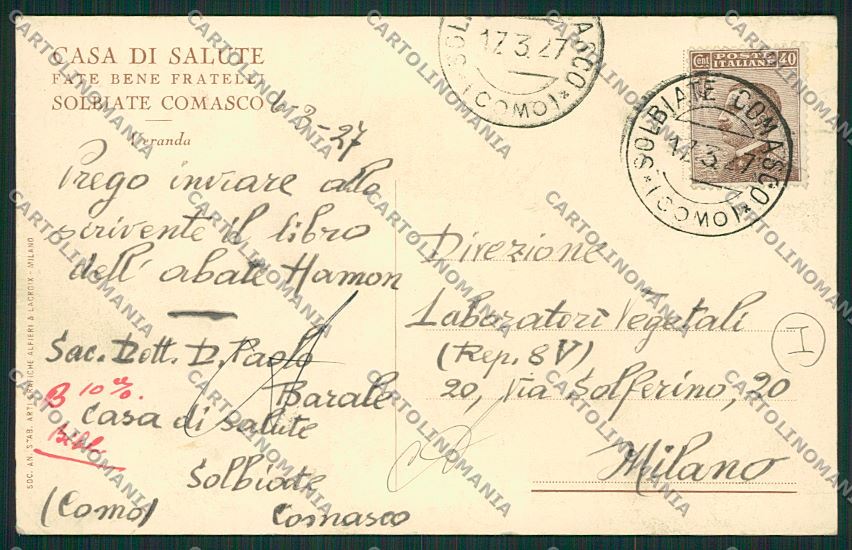 CASA DI SALUTE
FATE BENE FRATELLI
SOLBIATE COMASCO
Veranda
3-27
Prego inviare allo
scrivente il libro
dell' abate Hamon
Sac. Dott. D. Paolo
Barale
Casa di salute
Solbiate
(Como) Comasco
B 10%.
SOC. AN. STAB. ARTI GRAFICHE ALFIERI & LACROIX - MILANO
SOLBIATE COMASCO
17.3.27
*(COMO)*
Cent POSTE ITALIANE 40
SOLBIATE COMASCO
17.3.27
*(COMO)*
Direzione
Laboratori Vegetali
(Rep. 8V)
20, Via Solferino, 20
Milano
I
CARTOLINOMANIA